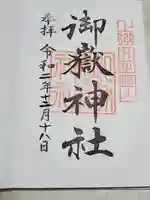 御嶽神社
奉拝
令和二年十二月十八日